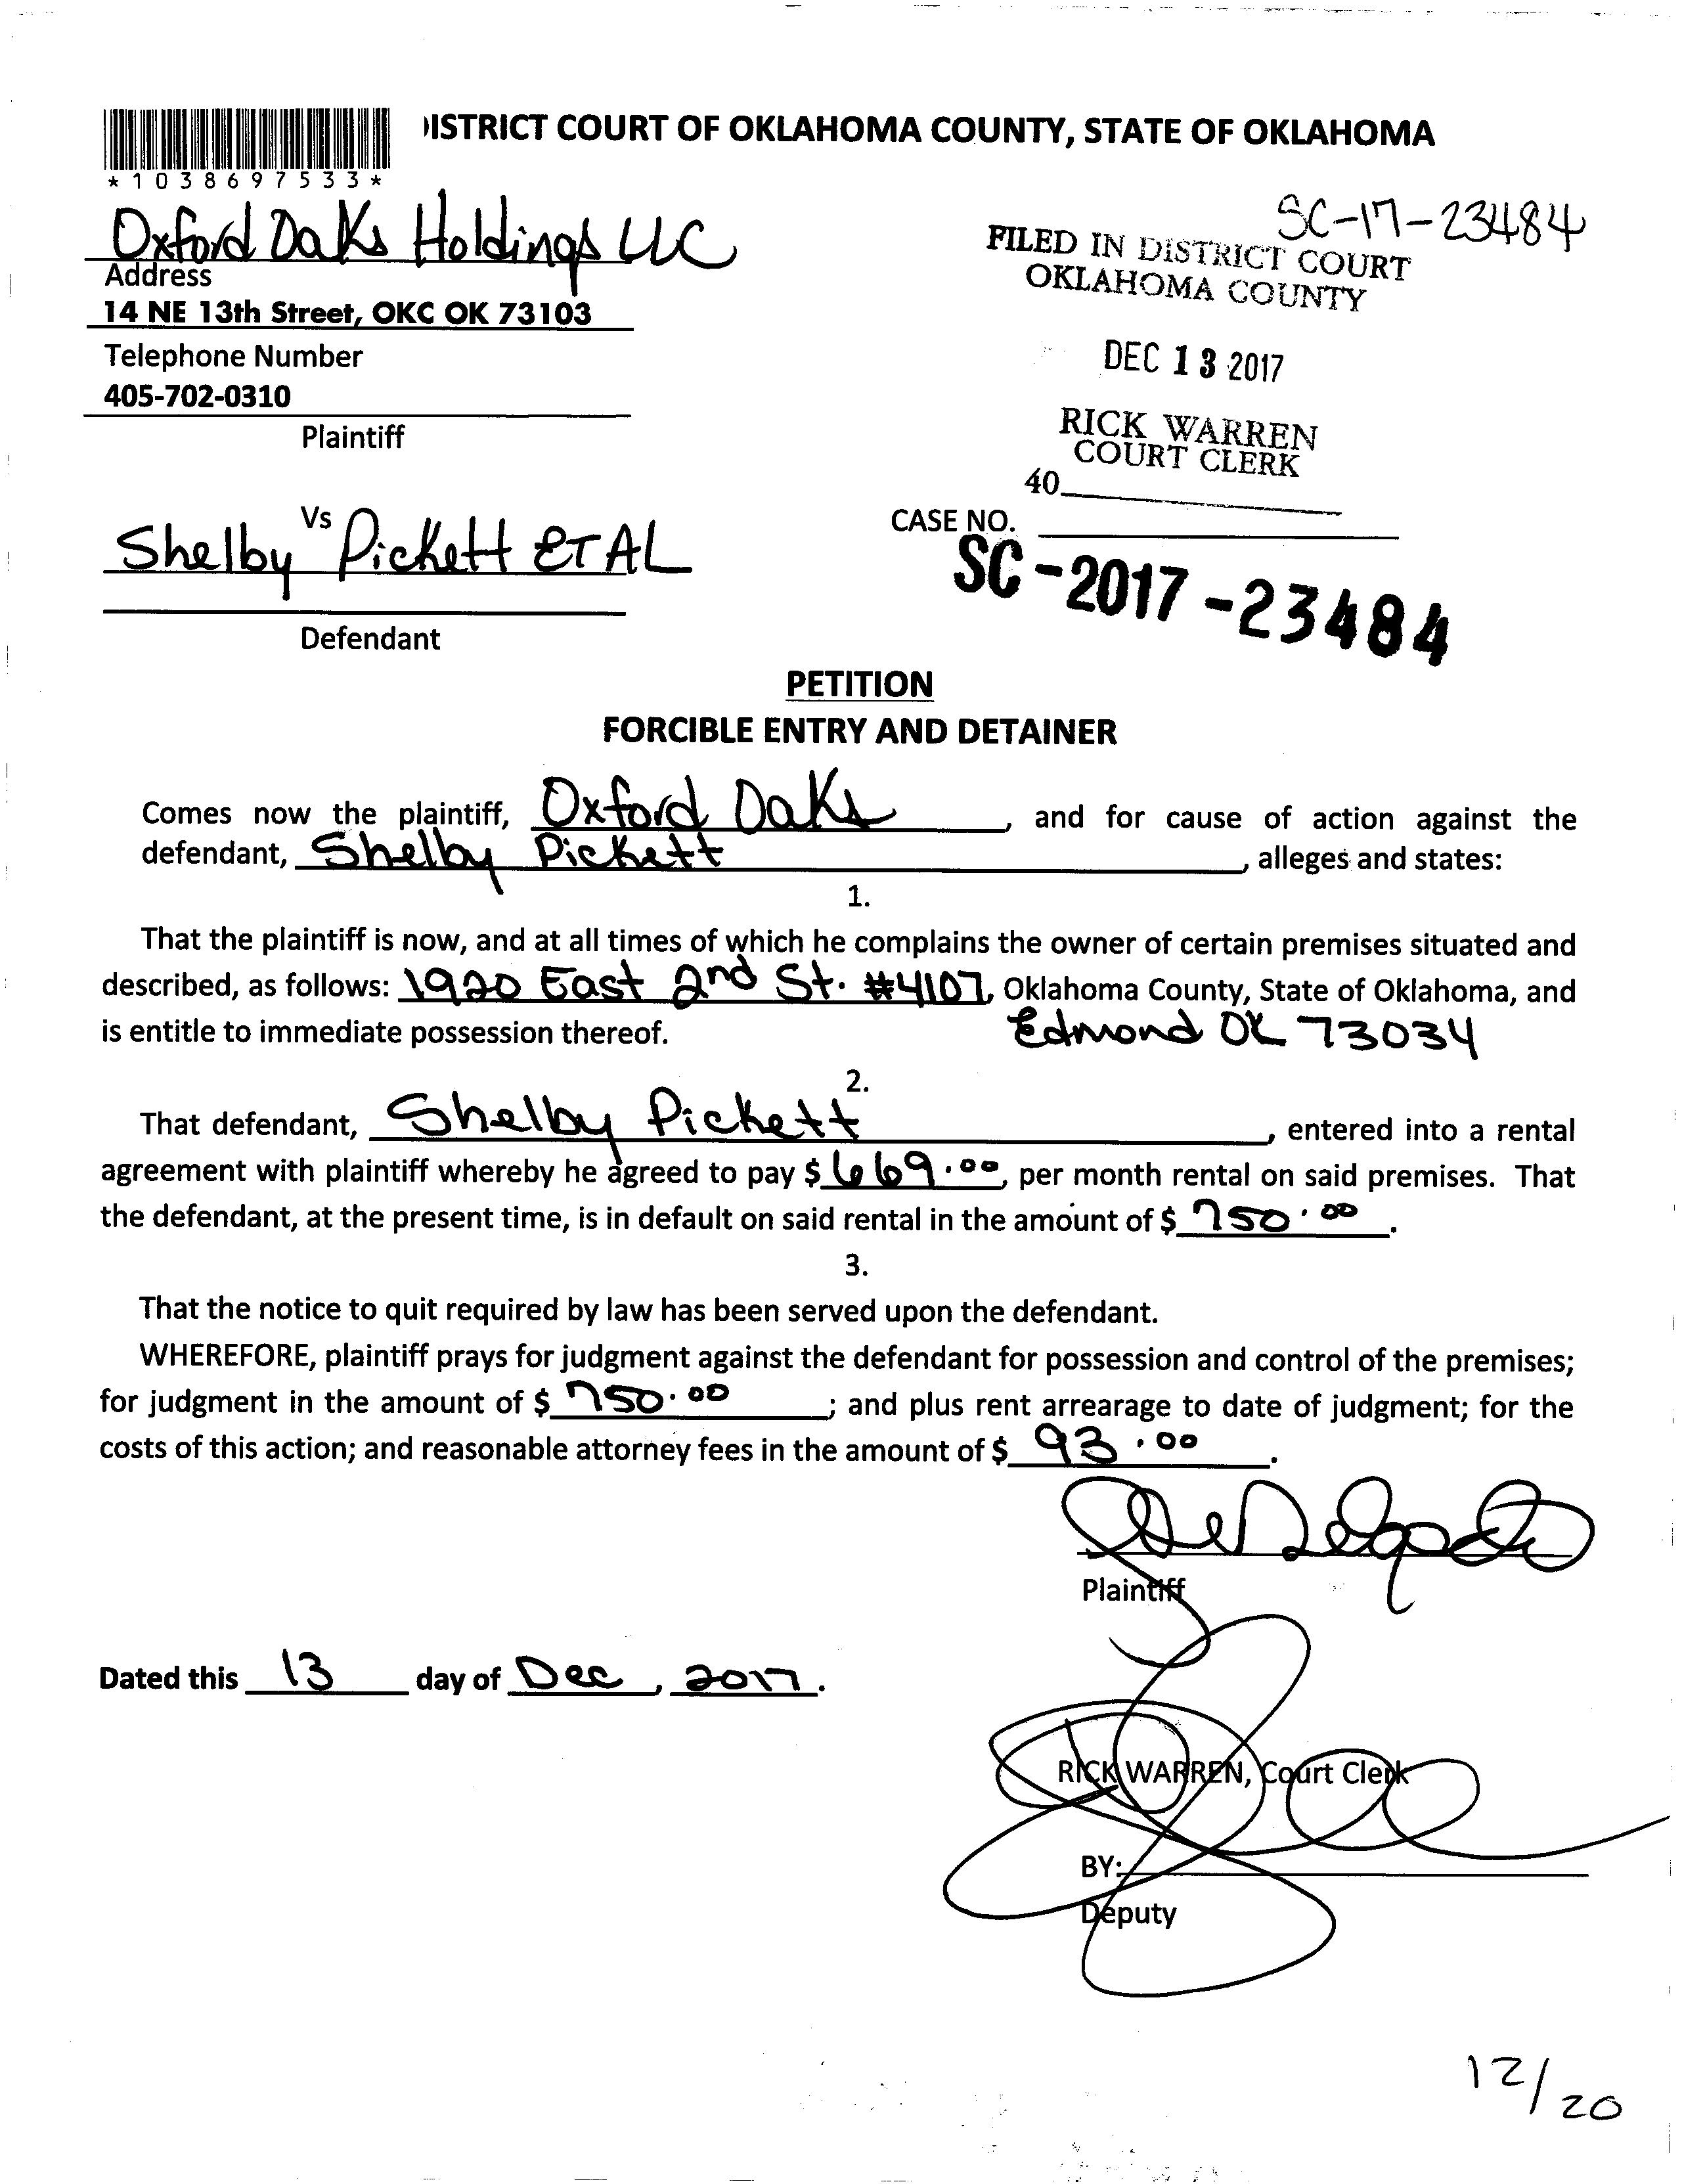 ISTRICT COURT OF OKLAHOMA COUNTY, STATE OF OKLAHOMA
*1038697533*
SC-17-23484
Oxford Oaks Holdings LLC
Address
14 NE 13th Street, OKC OK 73103
Telephone Number
405-702-0310
Plaintiff
FILED IN DISTRICT COURT
OKLAHOMA COUNTY
DEC 13 2017
RICK WARREN
COURT CLERK
40
Vs
Shelby Pickett ET AL
Defendant
CASE NO.
SC-2017-23484
PETITION
FORCIBLE ENTRY AND DETAINER
Comes now the plaintiff, Oxford Oaks, and for cause of action against the
defendant, Shelby Pickett, alleges and states:
1.
That the plaintiff is now, and at all times of which he complains the owner of certain premises situated and
described, as follows: 1920 East 2nd St. #4107, Oklahoma County, State of Oklahoma, and
is entitle to immediate possession thereof. Edmond OK 73034
2.
That defendant, Shelby Pickett, entered into a rental
agreement with plaintiff whereby he agreed to pay $669.00, per month rental on said premises. That
the defendant, at the present time, is in default on said rental in the amount of $750.00.
3.
That the notice to quit required by law has been served upon the defendant.
WHEREFORE, plaintiff prays for judgment against the defendant for possession and control of the premises;
for judgment in the amount of $750.00; and plus rent arrearage to date of judgment; for the
costs of this action; and reasonable attorney fees in the amount of $93.00.
Plaintiff
Dated this 13 day of Dec, 2017.
RICK WARREN, Court Clerk
BY:
Deputy
12/20